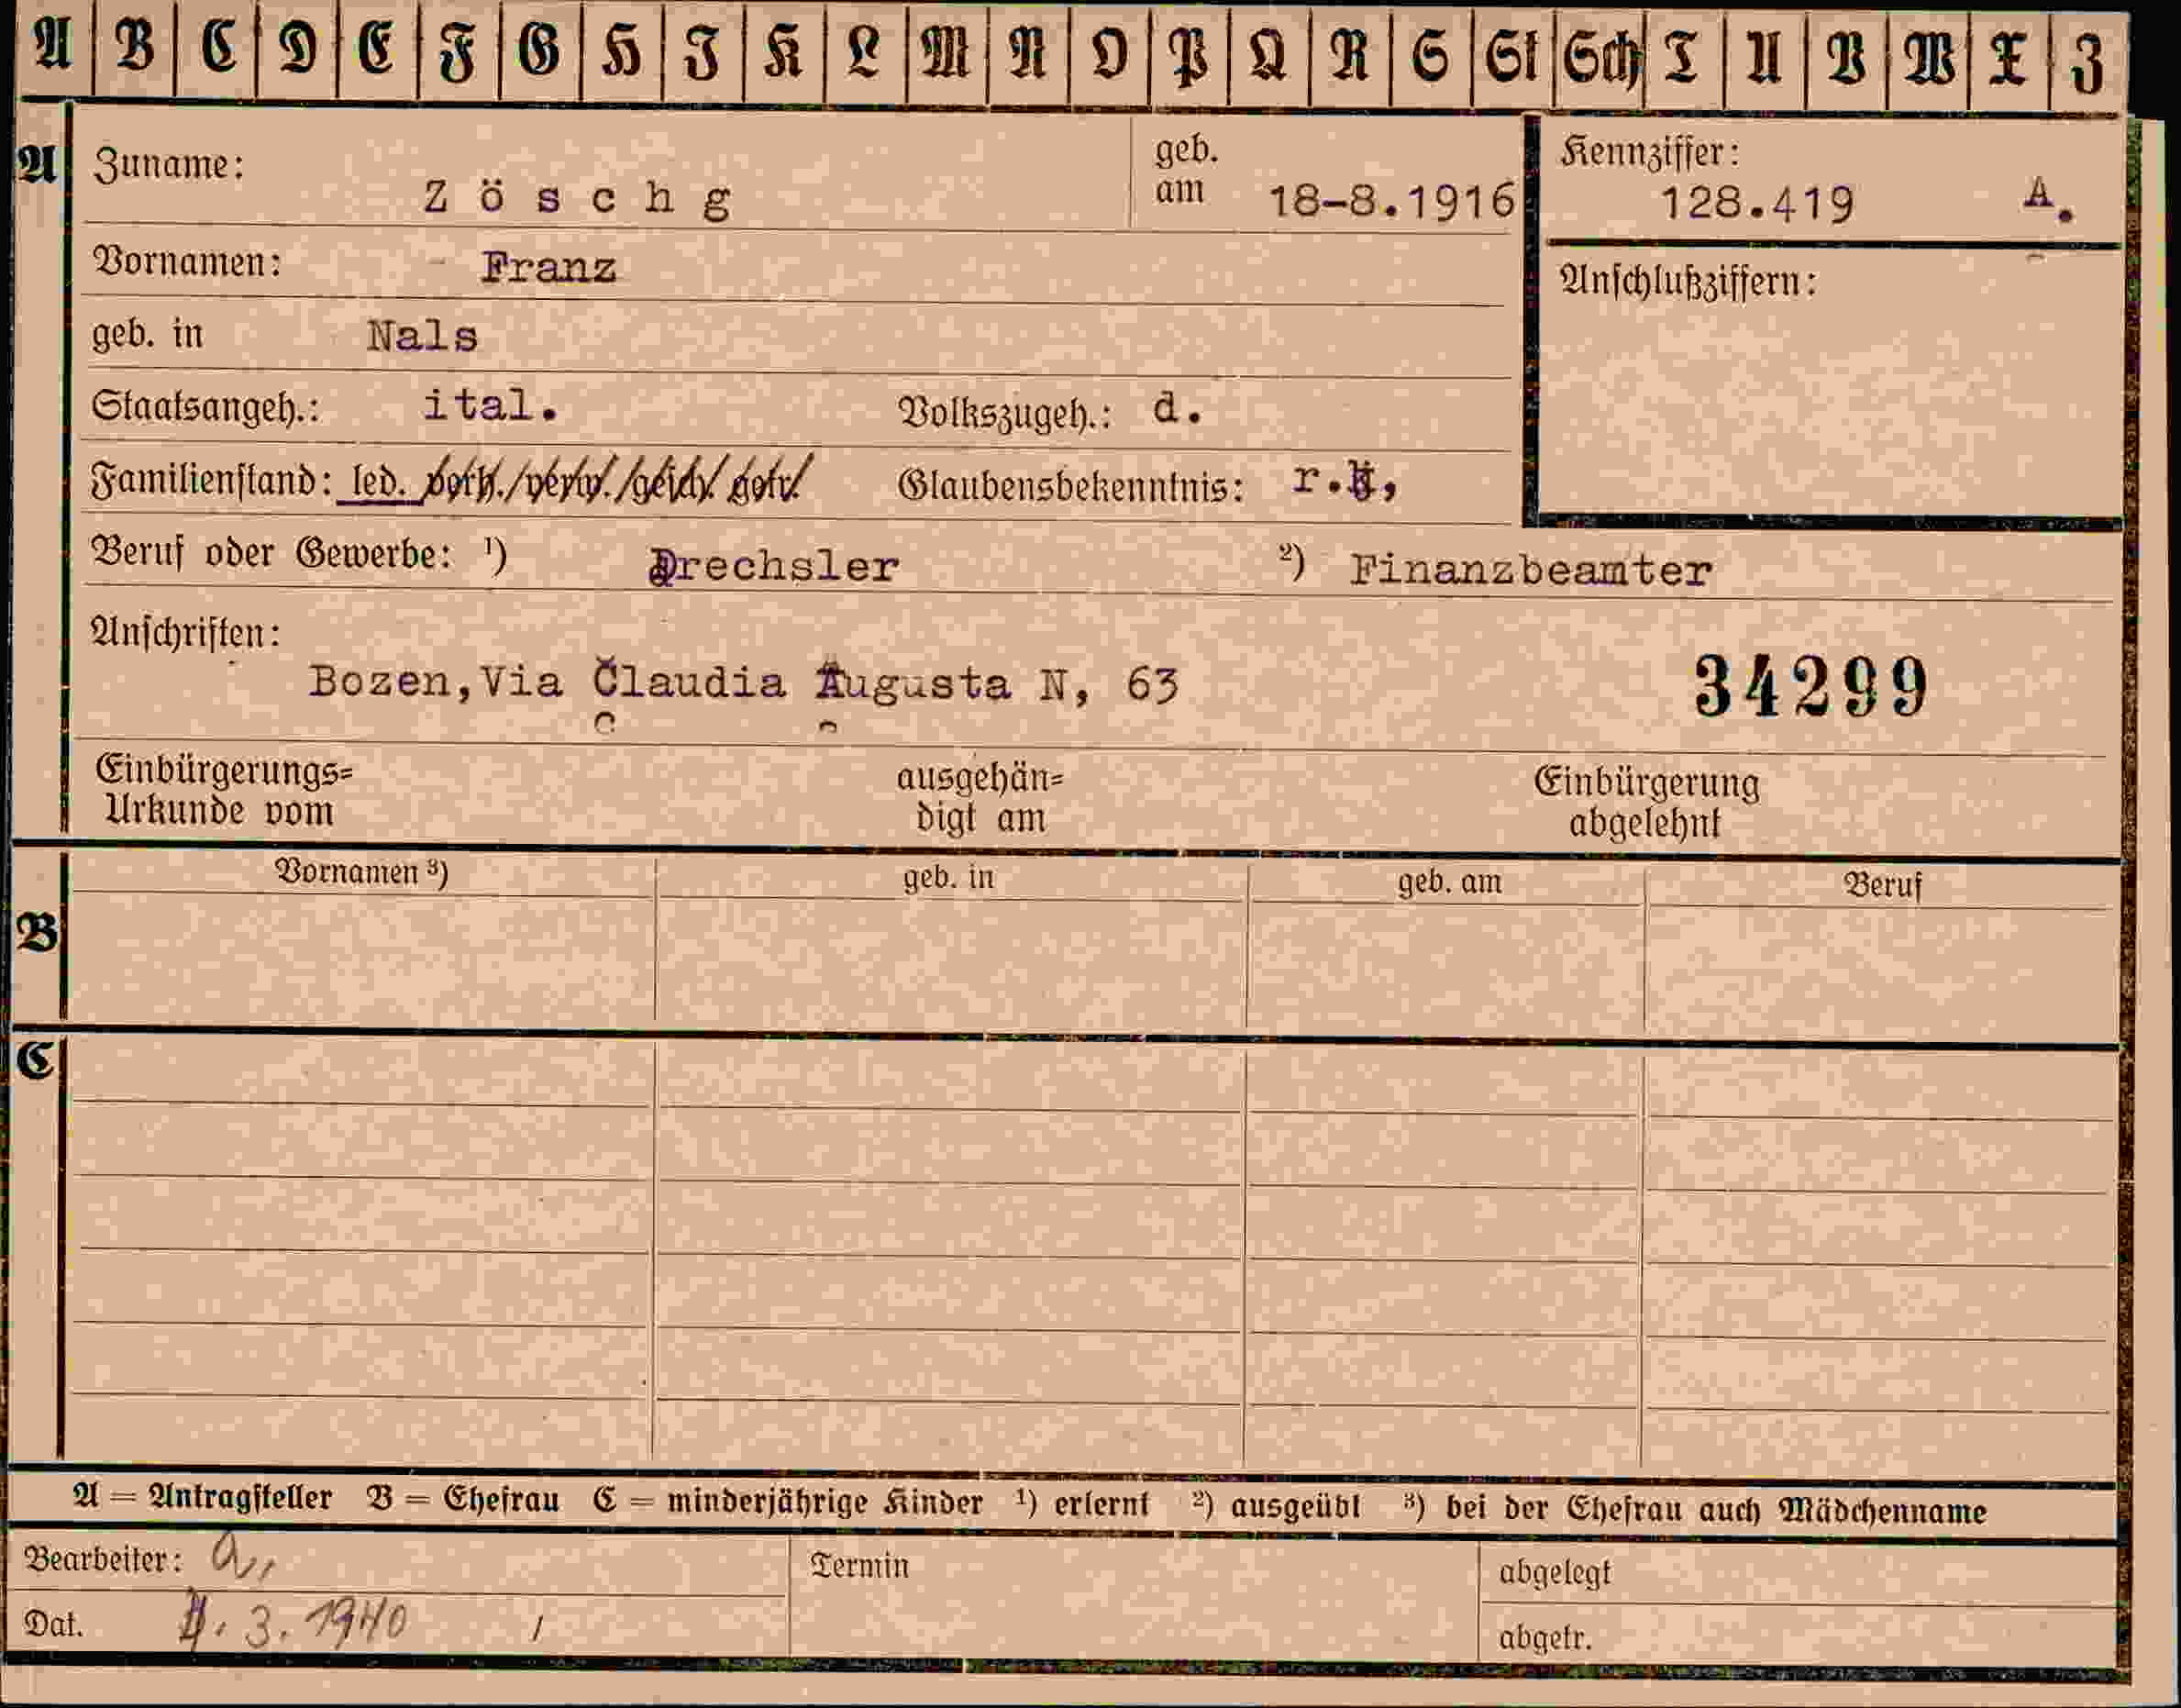 A B C D E F G H I K L M N O P Q R S St Sch T U V W X Z
A Zuname: Zöschg geb. am 18-8.1916 Kennziffer: 128.419 A.
Vornamen: Franz Anschlußziffern:
geb. in Nals
Staatsangeh.: ital. Volkszugeh.: d.
Familienstand: led. verh./verw./gesch. getr. Glaubensbekenntnis: r.k,
Beruf oder Gewerbe: ¹) Drechsler ²) Finanzbeamter
Anschriften:
Bozen,Via Claudia Augusta N, 63 34299
Einbürgerungs= ausgehän= Einbürgerung
Urkunde vom digt am abgelehnt
Vornamen ³) geb. in geb. am Beruf
B
C
A = Antragsteller B = Ehefrau C = minderjährige Kinder ¹) erlernt ²) ausgeübt ³) bei der Ehefrau auch Mädchenname
Bearbeiter: Termin abgelegt
Dat. 3. 1940 abgetr.